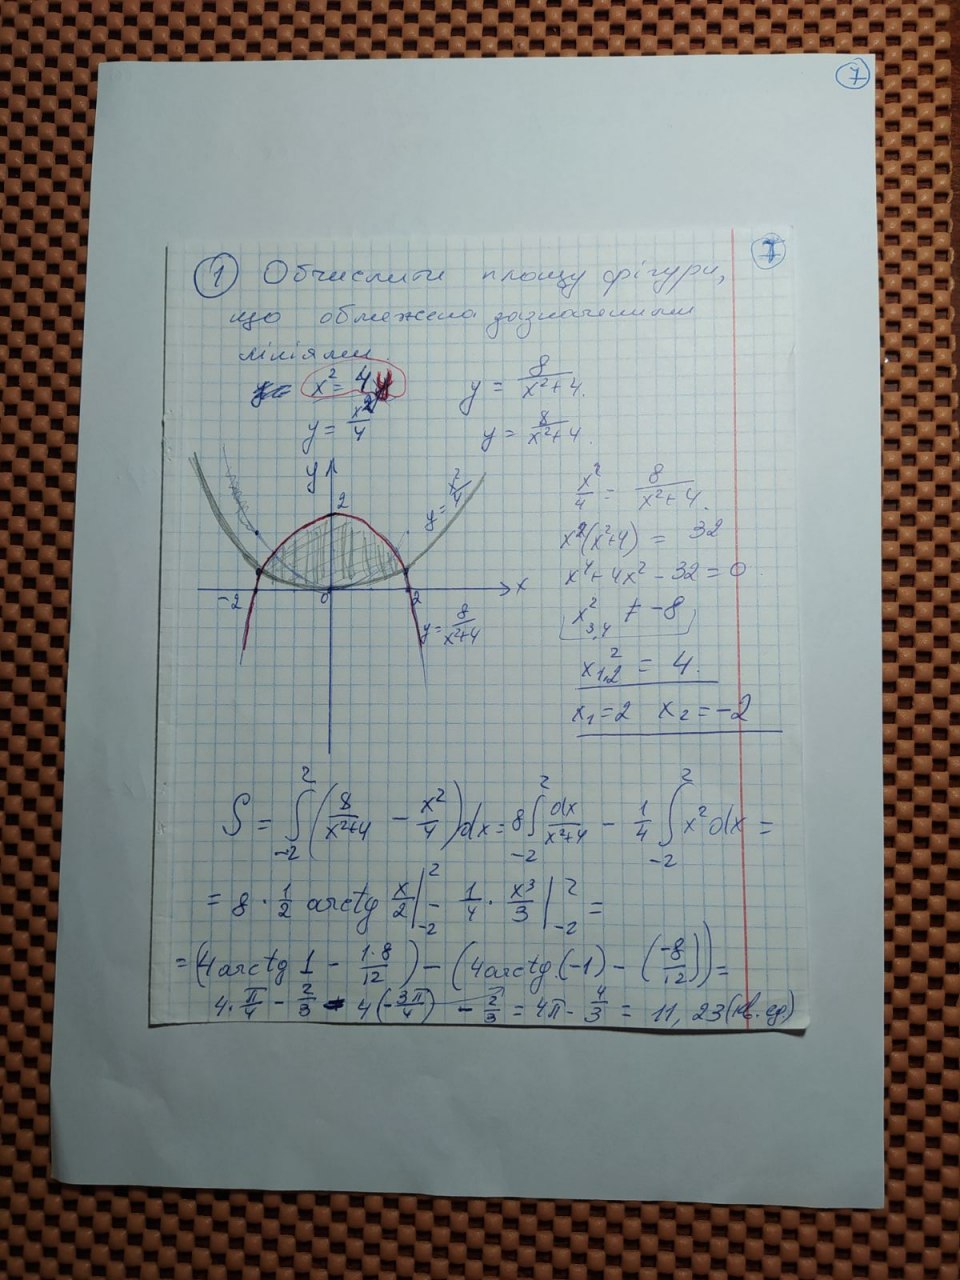 7
① Обчислити площу фігури, 7
що обмежена зазначеними
лініями.
x² = 4y y = 8/(x²+4).
y = x²/4 y = 8/(x²+4).
y
2
y = x²/4
-2 0 2 x
y = 8/(x²+4)
x²/4 = 8/(x²+4).
x²(x²+4) = 32
x⁴ + 4x² - 32 = 0
x²₃,₄ ≠ -8
x²₁,₂ = 4.
x₁ = 2 x₂ = -2
S = ∫₋₂² (8/(x²+4) - x²/4) dx = 8 ∫₋₂² dx/(x²+4) - 1/4 ∫₋₂² x² dx =
= 8 · 1/2 arctg x/2 |₋₂² - 1/4 · x³/3 |₋₂² =
= (4 arctg 1 - 1·8/12) - (4 arctg (-1) - (-8/12)) =
4 · π/4 - 2/3 - 4(-3π/4) - 2/3 = 4π - 4/3 = 11,23 (кв. од)